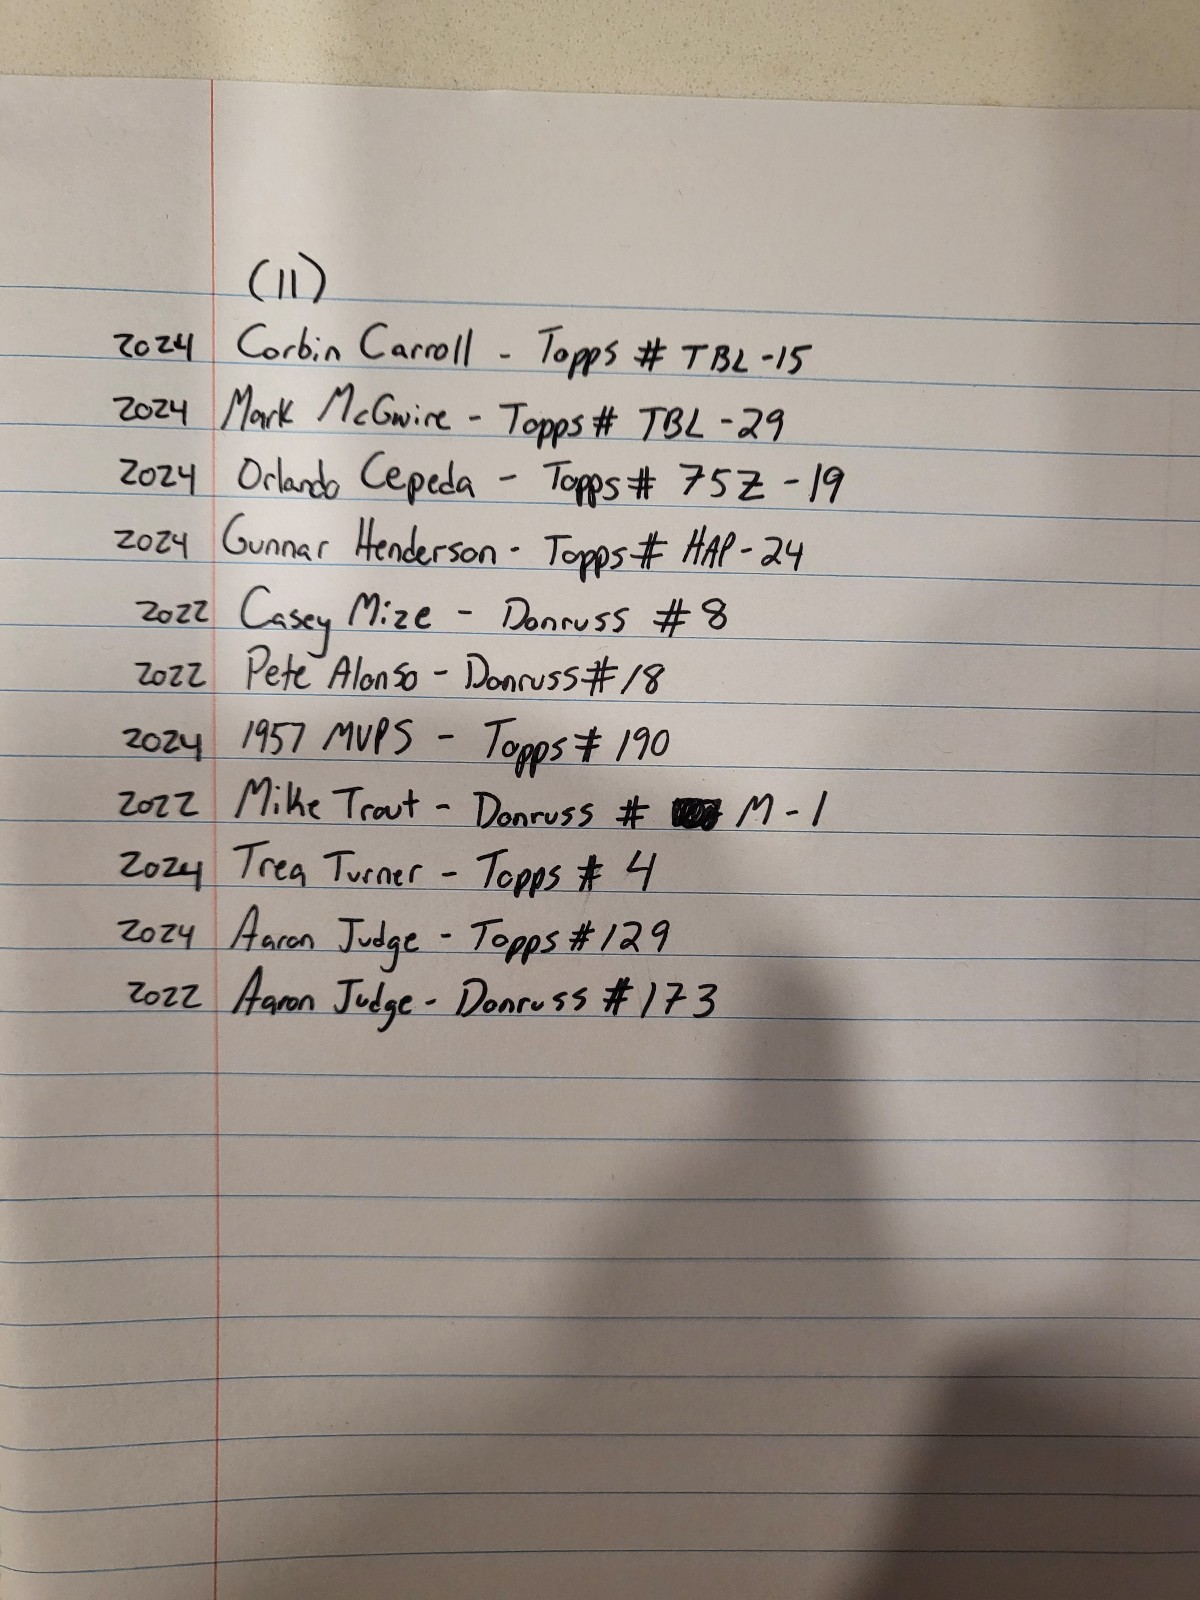 (11)
2024 Corbin Carroll - Topps # TBL-15
2024 Mark McGwire - Topps # TBL-29
2024 Orlando Cepeda - Topps # 75Z-19
2024 Gunnar Henderson - Topps # HAP-24
2022 Casey Mize - Donruss #8
2022 Pete Alonso - Donruss #18
2024 1957 MVPS - Topps # 190
2022 Mike Trout - Donruss # M-1
2024 Trea Turner - Topps # 4
2024 Aaron Judge - Topps #129
2022 Aaron Judge - Donruss #173